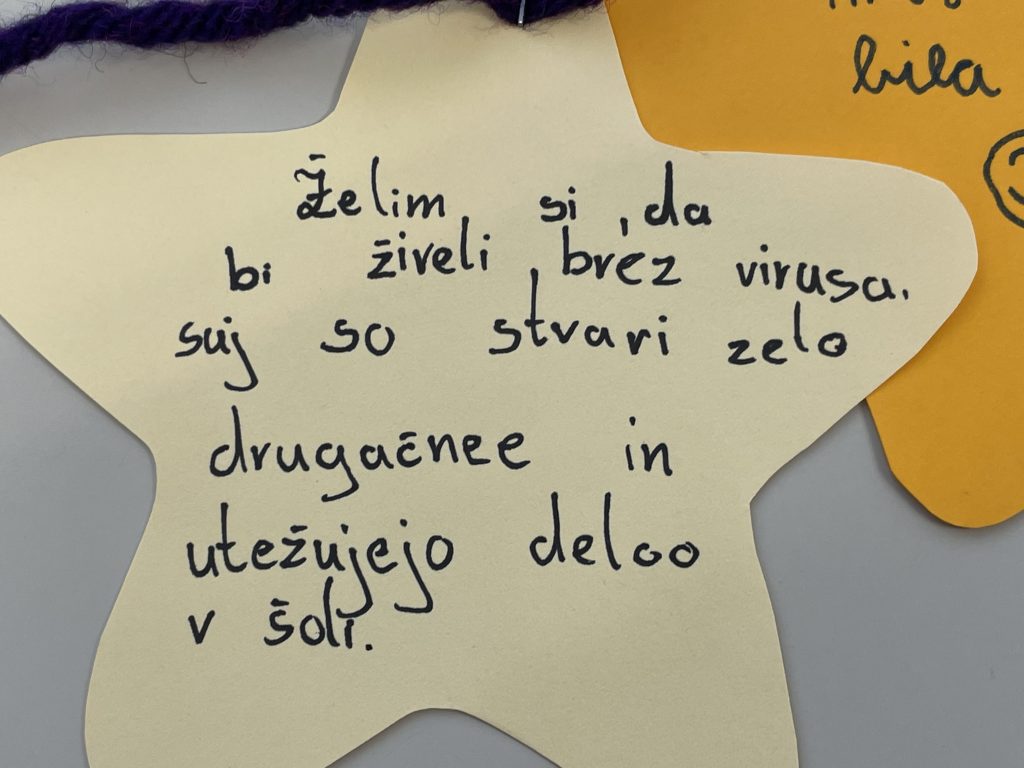 bila
Želim, si, da
bi živeli, brez virusa.
suj so stvari zelo
drugačnee in
utežujejo deloo
v šoli.